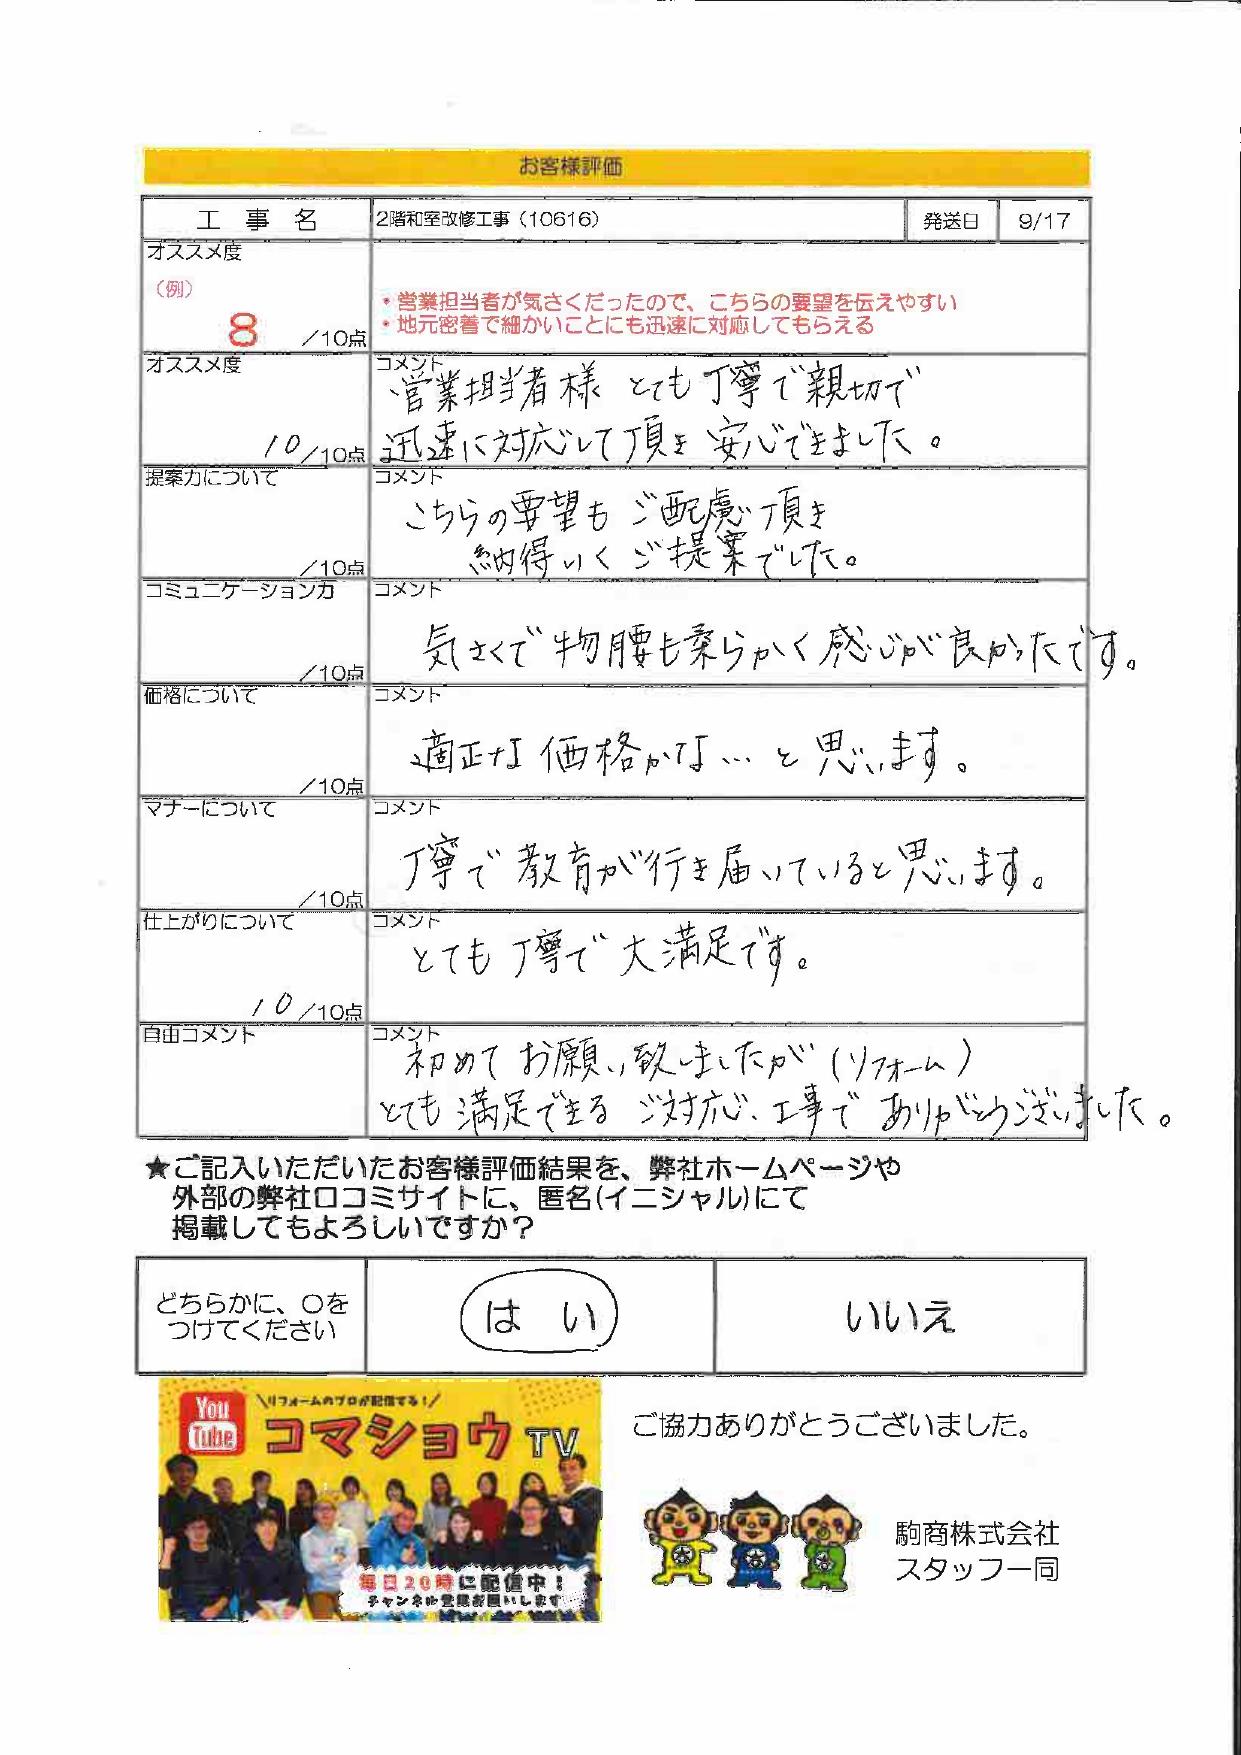 お客様評価
工 事 名 2階和室改修工事（10616） 発送日 9/17
オススメ度
（例）
8 ／10点
・営業担当者が気さくだったので、こちらの要望を伝えやすい
・地元密着で細かいことにも迅速に対応してもらえる
オススメ度
10／10点
コメント
営業担当者様 とても丁寧で親切で
迅速に対応して頂き 安心できました。
提案力について
／10点
コメント
こちらの要望も ご配慮頂き
納得いく ご提案でした。
コミュニケーション力
／10点
コメント
気さくで 物腰も柔らかく 感じが良かったです。
価格について
／10点
コメント
適正な 価格かな… と 思います。
マナーについて
／10点
コメント
丁寧で 教育が行き届いていると思います。
仕上がりについて
10／10点
コメント
とても 丁寧で 大満足です。
自由コメント
コメント
初めて お願い致しましたが（リフォーム）
とても 満足できる ご対応、工事で ありがとうございました。
★ご記入いただいたお客様評価結果を、弊社ホームページや
外部の弊社口コミサイトに、匿名(イニシャル)にて
掲載してもよろしいですか？
どちらかに、〇を
つけてください
は い
いいえ
You
Tube
\リフォームのプロが配信てる！/
コマショウTV
毎日20時に配信中！
チャンネル登録お願いします
ご協力ありがとうございました。
駒商株式会社
スタッフ一同